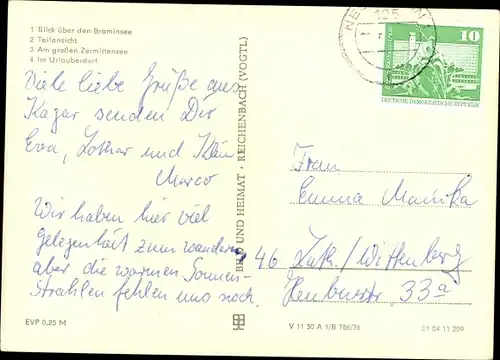 1 Blick über den Braminsee
2 Teilansicht
3 Am großen Zermittensee
4 Im Urlauberdorf
Viele liebe Grüße aus
Kagar senden Dir
Eva, Lothar und Klein
Marco
Wir haben hier viel
gelegenheit zum wandern,
aber die warmen Sonnen-
strahlen fehlen uns noch.
EVP 0,25 M
BILD UND HEIMAT · REICHENBACH (VOGTL)
10
DEUTSCHE DEMOKRATISCHE REPUBLIK
Frau
Emma
46 Luth./Wittenberg
33a
V 11 50 A 1/B 786/76
01 04 11 209